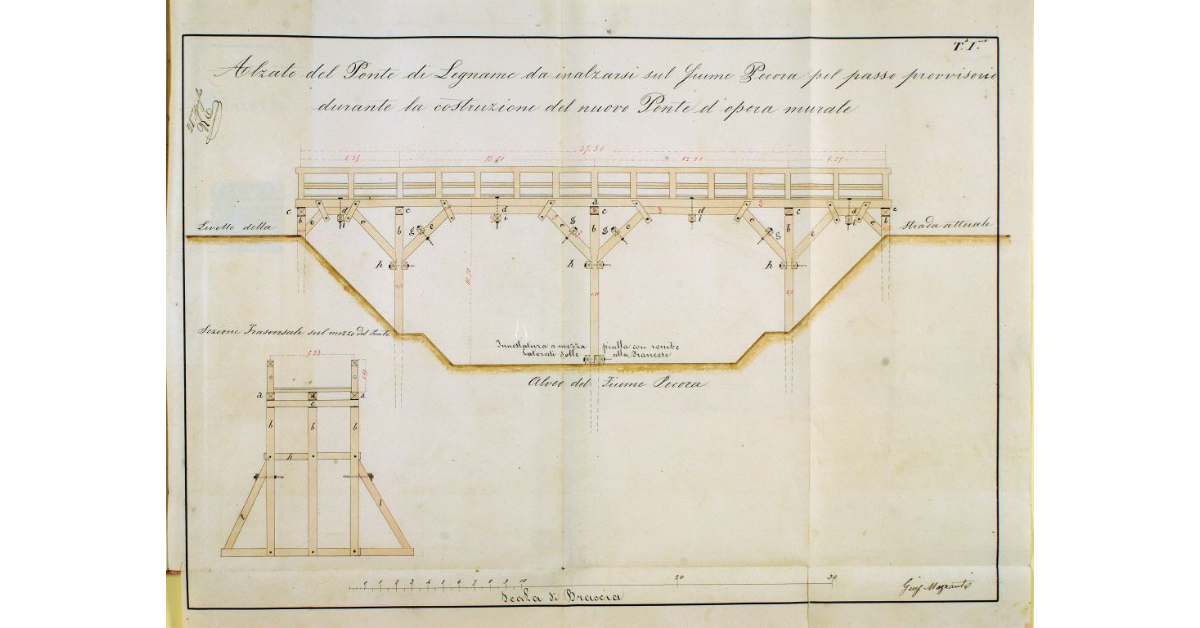 T.ª I.ma
Alzato del Ponte di Legname da inalzarsi sul fiume Pecora pel passo provvisorio
durante la costruzione del nuovo Ponte d'opera murale
37.50
6.25 12.50 12.50 6.25
a
c d c d c d c d c
b e e i b e i g b g e i g b e i e b
h h h
Livello della
Strada attuale
Sezione Trasversale sul mezzo del Ponte
Innestatura a mezza pialla con
alla Francese
Alveo del Fiume Pecora
5.23
a a a
c
b b b
h
l l
0 1 2 3 4 5 6 7 8 9 10 20 30
Scala di Braccia